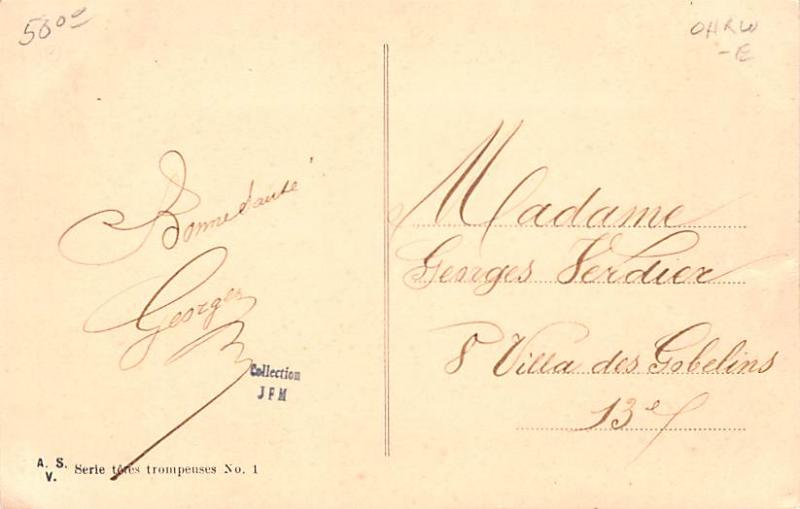 58 00
OHRW
-E
Bonne Santé
Georges
Madame
Georges Verdier
8 Villa des Gobelins
13e
Collection
JFM
A. S.
V.
Serie têtes trompeuses No. 1